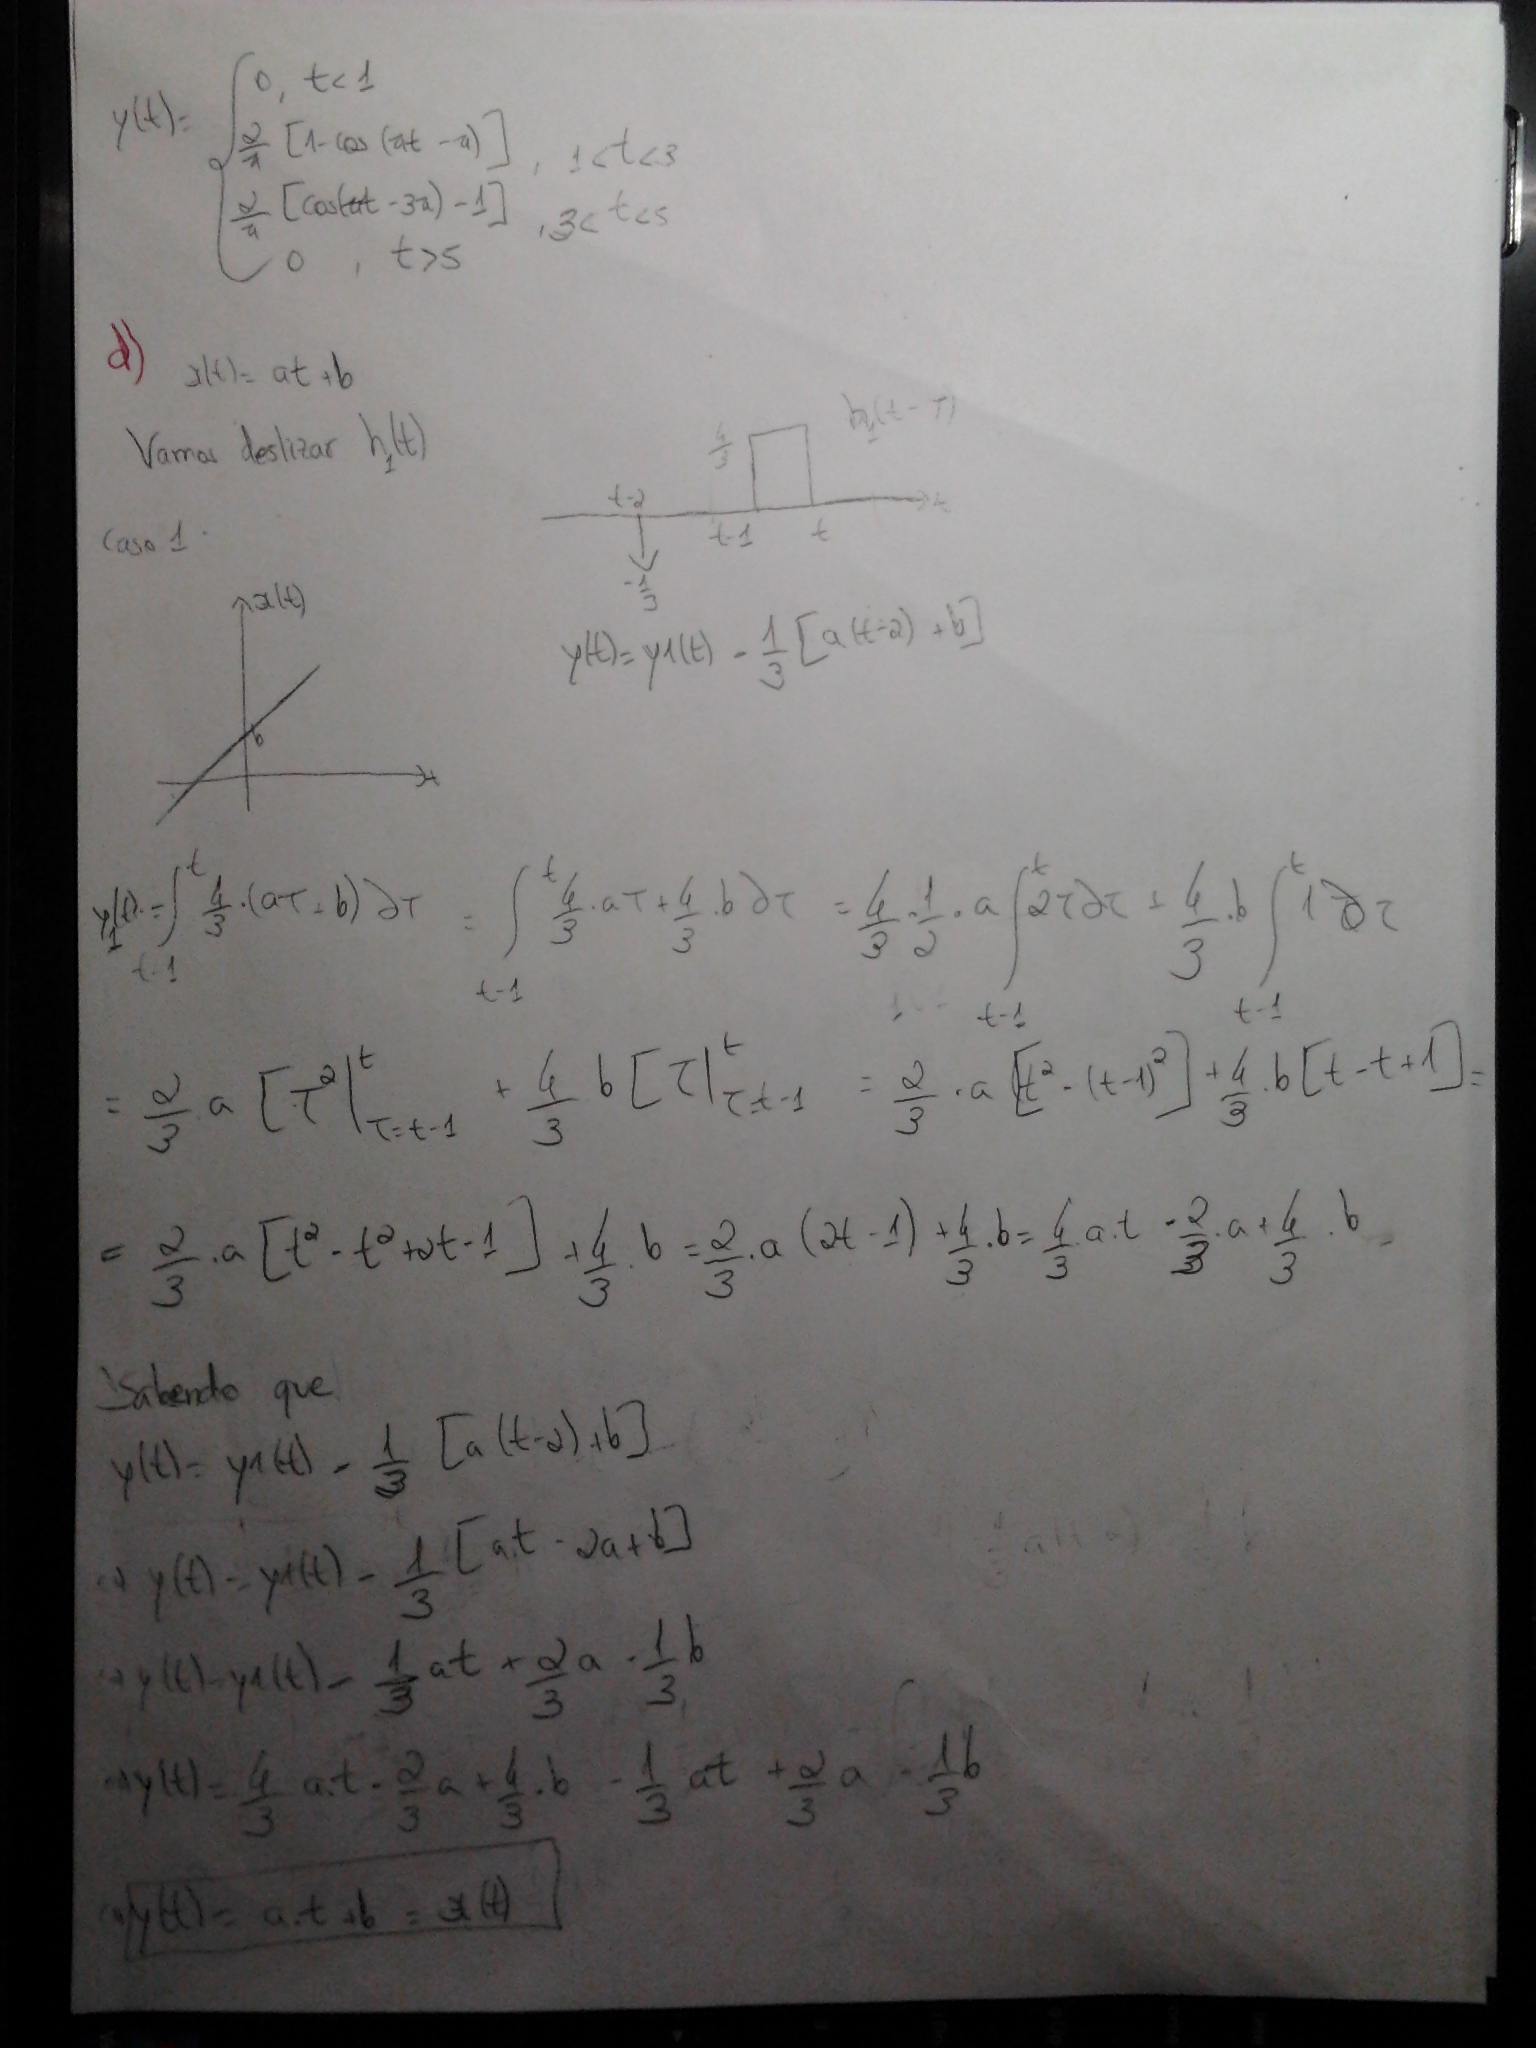 y(t)= { 0, t<1
2/π [1-cos(πt-π)], 1<t<3
2/π [cos(πt-3π)-1], 3<t<5
0, t>5
d) x(t)= at+b
Vamos deslizar h₁(t)
4/3 h₁(t-τ)
t-2 t-1 t
-1/3
Caso 1.
x(t)
b
t
y(t)= y1(t) - 1/3 [a(t-2)+b]
y₁(t)= ∫_{t-1}^{t} 4/3·(aτ+b)∂τ = ∫_{t-1}^{t} 4/3·aτ+4/3·b ∂τ = 4/3·1/2·a ∫_{t-1}^{t} 2τ∂τ + 4/3·b ∫_{t-1}^{t} 1 ∂τ
= 2/3 a [τ²|_{τ=t-1}^{t} + 4/3 b [τ|_{τ=t-1}^{t} = 2/3·a [t²-(t-1)²]+4/3·b[t-t+1]=
= 2/3·a [t²-t²+2t-1]+4/3·b = 2/3·a(2t-1)+4/3·b = 4/3 a·t - 2/3·a+4/3·b =
Sabendo que
y(t)= y1(t) - 1/3 [a(t-2)+b]
⇒ y(t)= y1(t) - 1/3 [at-2a+b]
⇒ y(t)= y1(t) - 1/3 at + 2/3 a - 1/3 b
⇒ y(t)= 4/3 a·t - 2/3 a + 4/3·b - 1/3 at + 2/3 a - 1/3 b
⇒ y(t)= a·t+b = x(t)